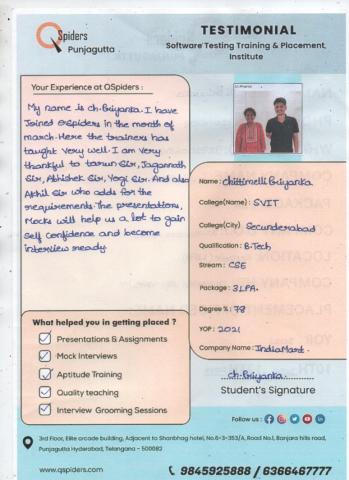 QSpiders
Punjagutta
TESTIMONIAL
Software Testing Training & Placement
Institute
Your Experience at QSpiders :
My name is ch. Priyanka. I have
Joined QSpiders in the month of
march. Here the trainers has
taught very well. I am very
thankful to tarun Sir, Jagannath
Sir, Abhishek Sir, Yogi Sir. And also
Akhil Sir who adds for the
requirements. The presentations,
Mocks will help us a lot to gain
Self Confidence and become
interview ready.
Name : Chittimelli Priyanka
College(Name) : SVIT
College(City) Secunderabad
Qualification : B.Tech
Stream : CSE
Package : 3LPA.
Degree % : 78
YOP : 2021
Company Name : IndiaMart.
What helped you in getting placed ?
Presentations & Assignments
Mock Interviews
Aptitude Training
Quality teaching
Interview Grooming Sessions
ch. Priyanka
Student's Signature
Follow us :
3rd Floor, Elite arcade building, Adjacent to Shanbhag hotel, No.6-3-353/A, Road No.1, Banjara hills road,
Punjagutta Hyderabad, Telangana - 500082
www.qspiders.com
9845925888 / 6366467777